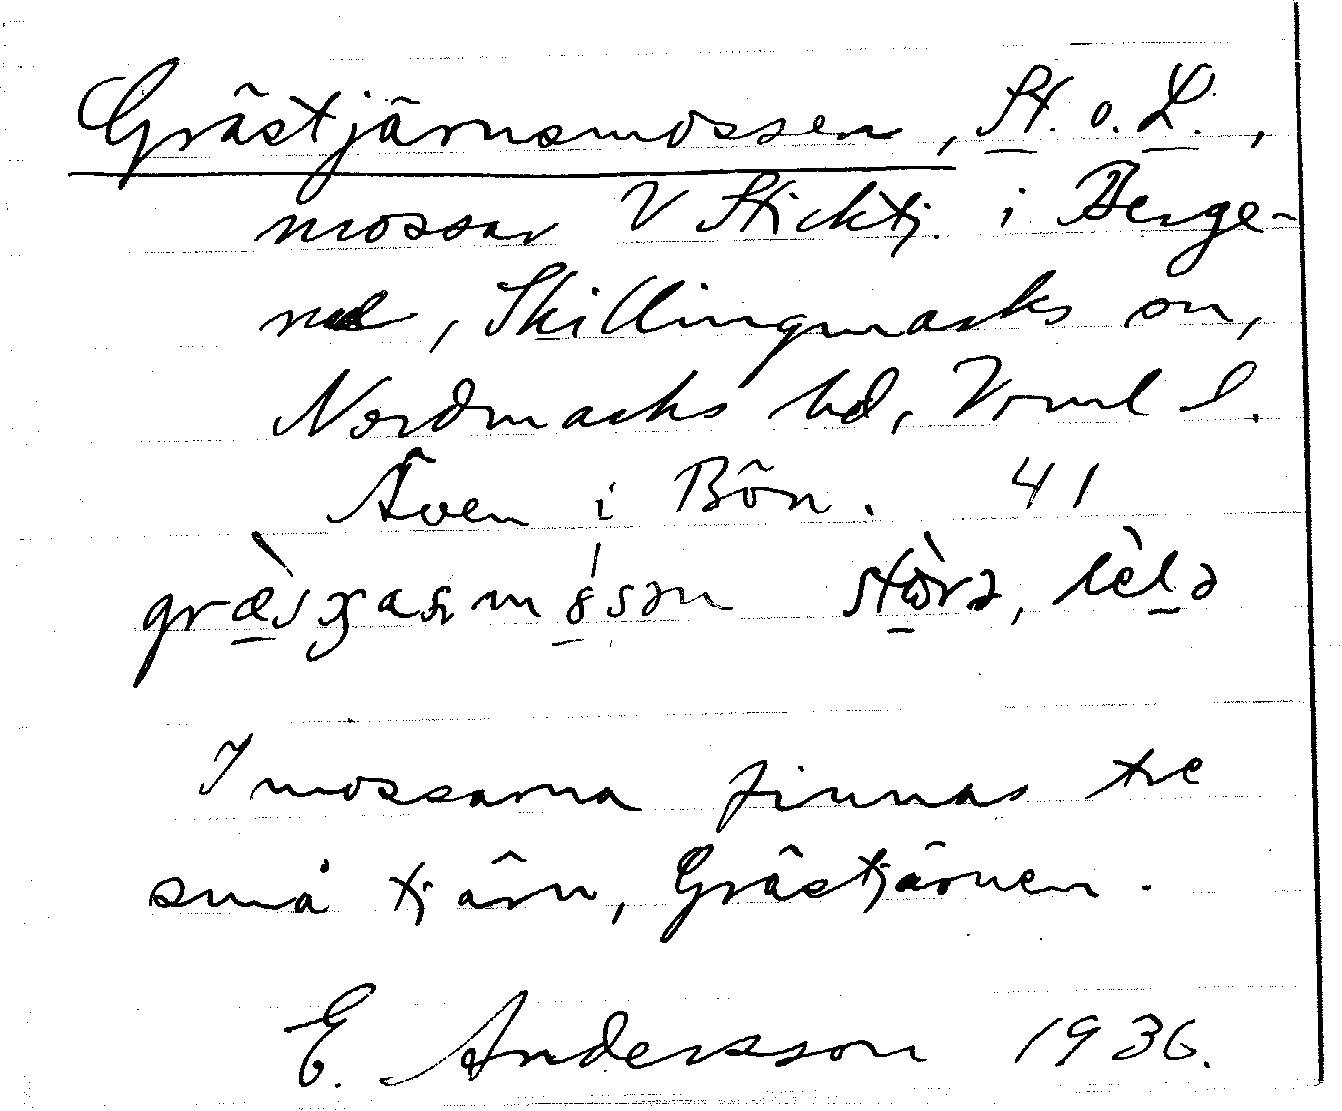 Grästjärnsmossen, St. o. L.,
mossar V Sticktj. i Berge-
rud, Skillingmarks sn,
Nordmarks hd, Vrml l.
Även i Bön. 41
græ̀sʒaɳmɞ́sən stòrə, lèlə
I mossarna finnas tre
små tjärn, Grästjärnen.
E. Andersson 1936.